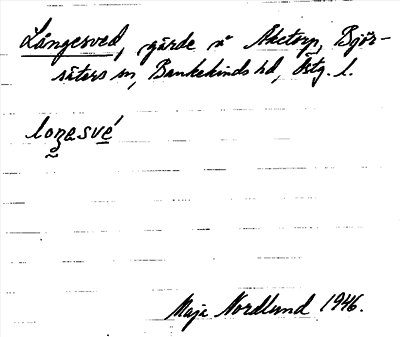 Långesved, gärde i Åketorp, Björ-
säters sn, Bankekinds hd, Östg. l.
loŋasvé
Maja Nordlund 1946.